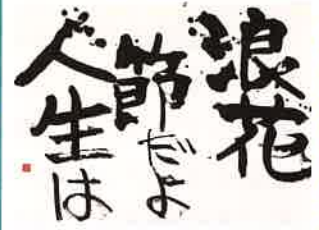 浪花
節だよ
人生は